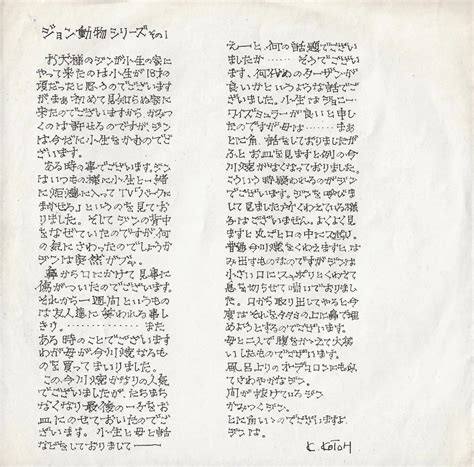 ジョン動物シリーズ その1
お犬様のジンが小生の家に
やって来たのは小生が18才の
頃だったと思うのでございます
がまぁ初めて見知らぬ家に
来たのでございますから、かみつ
くのは許せるのですが、ジン
は今だに小生をかむのでご
ざいます。
ある時の事でございます。ジン
はいつもの様に小生と一緒
に居間に入ってTV「ルパンに
まかせろ」というのを見てお
りました。そしてジンの背中
をなぜていたのですが、何
の気にさわったのでしょうか
ジンは突然ガブッ。
鼻から口にかけて見事に
傷がついたのでございます。
それから一週間というもの
は友人達に笑われる事し
きり。………… また
ある時のことでございます
わが母が今川焼なるもの
を買ってまいりました。
この今川焼かなりの人気
でございましたが、たちまち
なくなり最後の一ケをお
皿にのせておいたのでござ
います。小生と母と話
などをしておりまして――
えーと、何の話題でござい
ましたか…… そうでござい
ます、何代めのターザンが
良いかというような話でご
ざいました。小生はジョニー・
ワイズミュラーが良いと申し
たのですが母は…… まぁ
とに角、話をしておりましたが
ふとお皿を見ますと例の今
川焼がなくなっておりました。
こういう時疑われるのがジン
でございます。ジンを呼びま
して見ましたがくわえている様
子はございません。よくよく見
ますと丸ごと口の中にスッポリ。
普通今川焼をくわえますと、は
み出すものなのですがジンは
小さい口にスッポリとくわえて
息を切らせて喘いでおりまし
た。口から取り出してやると今
度はそれを々々さの上に鼻で埋
めようとするのでございます。
母と二人で腹をかかえて大笑
いしたものでございます。
風呂上りのオーデコロンにも似
てさわやかなジン
間が抜けているジン
かみつくジン
とに角いいのでございますよ、
ジンは。
K. KOTOH